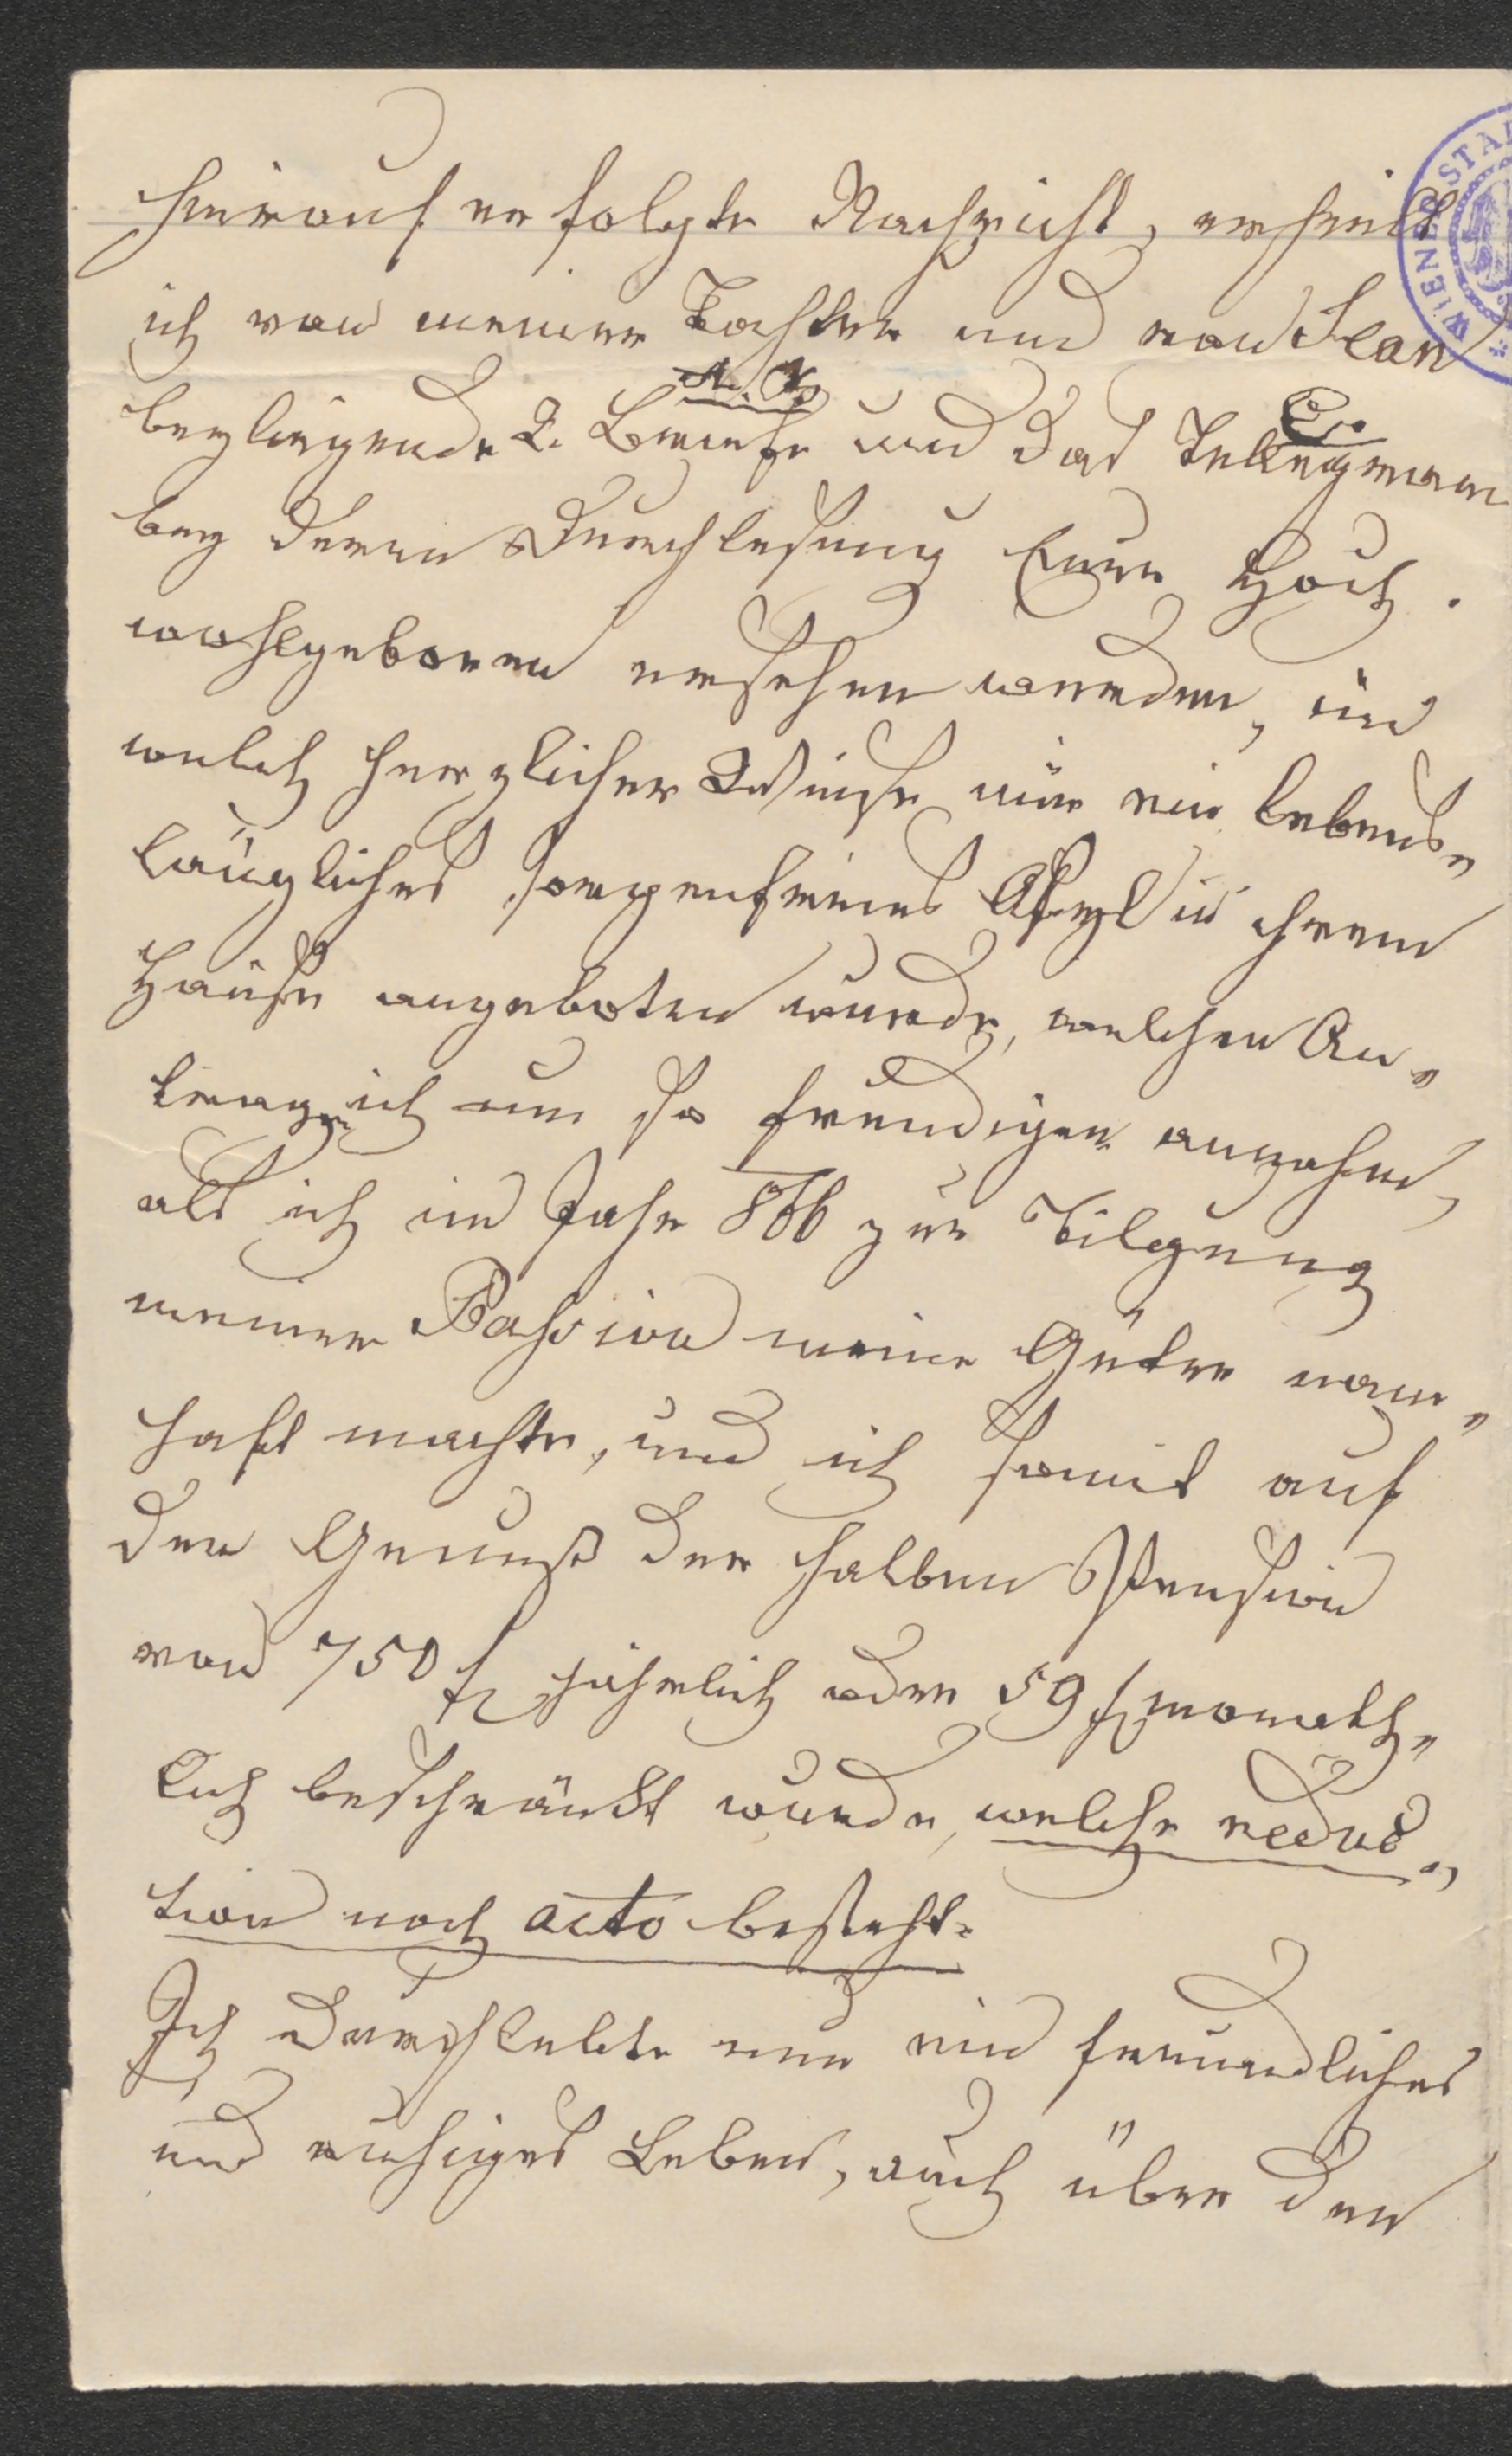 hierauf erfolgte Nachricht, erhielt
ich von meiner Tochter und von Jean
A. B. C.
beyliegende 2. Briefe und das Telegramm
bey deren Durchlesung Euer Hoch-
wohlgeboren ersehen werden, in
welch herzlicher Weise mir ein lebens„
längliches sorgenfreies Asyl in ihrem
Hause angeboten wurde, welchen An„
trag ich um so freudiger annahm,
als ich im Jahr 866 zur Tilgung
meiner Passiva meine Güter nam„
haft machte, und ich somit auf
den Genuß der halben Pension
von 750 f jährlich oder 59 f monatl„
lich beschränkt wurde, welche reduc„
tion noch acto besteht.
Ich durchlebte nun ein freundliches
und ruhiges Leben, auch über den
WIENER STA